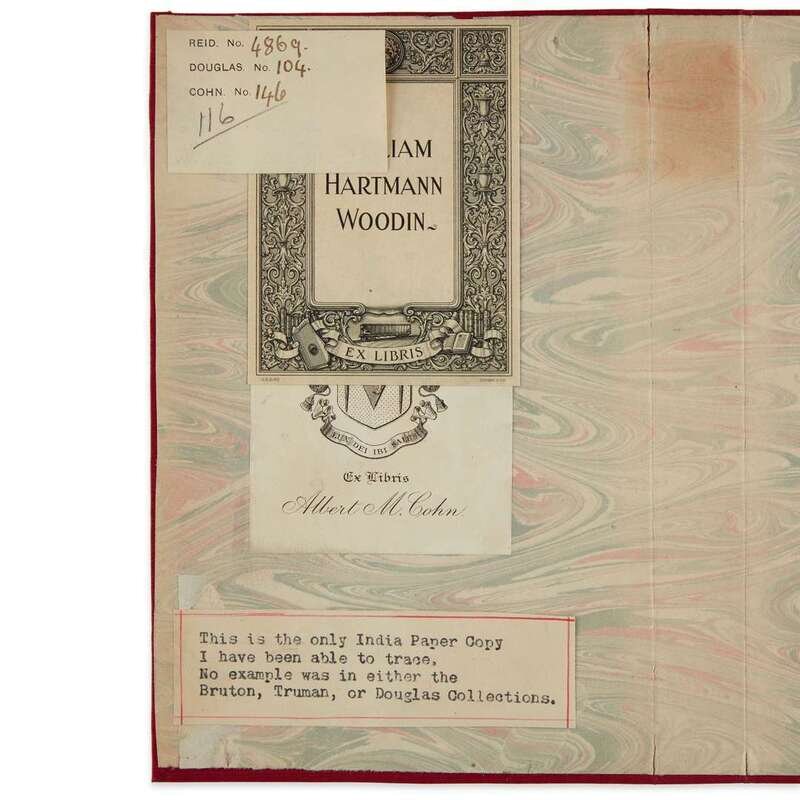 REID. No. 4869.
DOUGLAS. No. 104.
COHN. No. 146
116
LIAM
HARTMANN
WOODIN
EX LIBRIS
DEI IBI
Ex Libris
Albert M. Cohn
This is the only India Paper Copy
I have been able to trace,
No example was in either the
Bruton, Truman, or Douglas Collections.